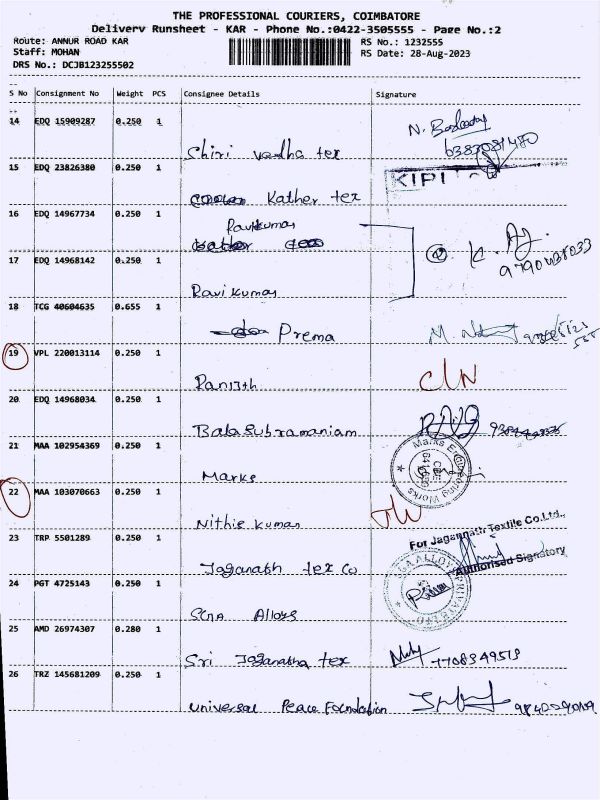 THE PROFESSIONAL COURIERS, COIMBATORE
Delivery Runsheet - KAR - Phone No.:0422-3505555 - Page No.:2
Route: ANNUR ROAD KAR
RS No.: 1232555
Staff: MOHAN
RS Date: 28-Aug-2023
DRS No.: DCJB123255502
S No Consignment No Weight PCS Consignee Details Signature
14 EDQ 15909287 0.250 1
Shiri vedha tex
15 EDQ 23826380 0.250 1
KIPI
Kather tex
16 EDQ 14967734 0.250 1
Ravikumar
17 EDQ 14968142 0.250 1
Ravikumar
18 TCG 40604635 0.655 1
Prema
19 VPL 220013114 0.250 1
Ranjith
20 EDQ 14968034 0.250 1
Balasubramaniam
21 MAA 102954369 0.250 1
Marks
Marks Engineering Works
22 MAA 103070663 0.250 1
Nithie kumar
23 TRP 5501289 0.250 1
For Jagannath Textile Co.Ltd.,
Authorised Signatory
Jaganath tex co
24 PGT 4725143 0.250 1
SGA Alloys
25 AMD 26974307 0.280 1
Sri Jaganatha tex
7708349513
26 TRZ 145681209 0.250 1
universal Peace Foundation